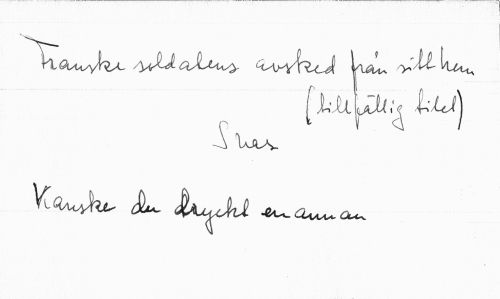 Franske soldatens avsked från sitt hem
(tillfällig titel)
Svar
Kanske du tryckt en annan